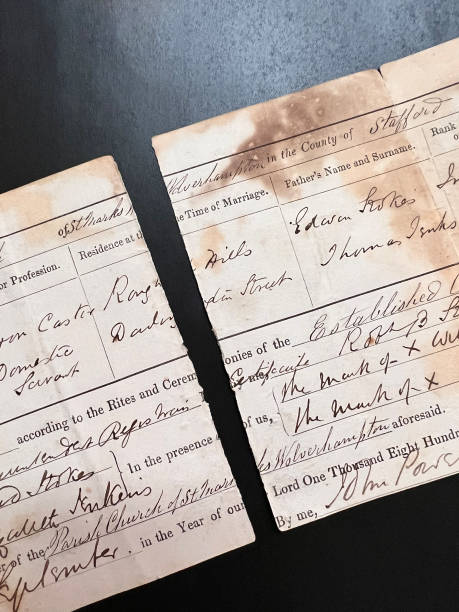 of St Marks Wolverhampton in the County of Stafford
or Profession. Residence at the Time of Marriage. Father's Name and Surname. Rank
Iron Caster Rough Hills Edwin Stokes
Domestic Servant Darlington Street Thomas Jenks
according to the Rites and Ceremonies of the Established
Superintendent Registrars Certificate Robt B
Stokes In the presence of us, The mark of X
Elizabeth Jenkins The mark of X
of the Parish Church of St Marks Wolverhampton aforesaid.
September in the Year of our Lord One Thousand Eight Hund
By me, John